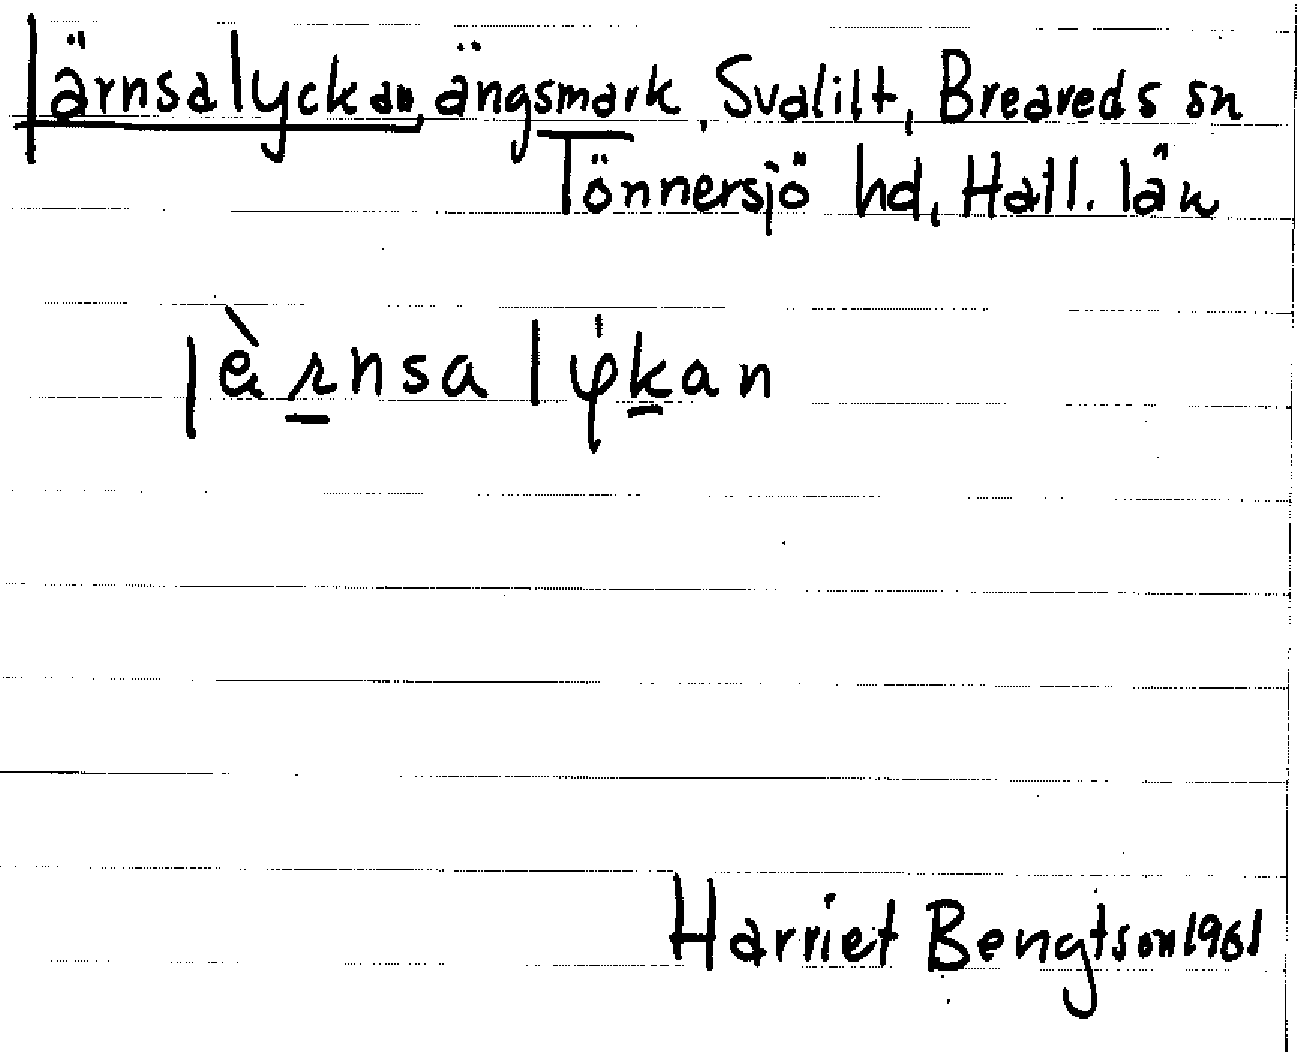 Lärnsalyckan, ängsmark, Svalilt, Breareds sn
Tönnersjö hd, Hall. län
lèrnsalykan
Harriet Bengtson 1961